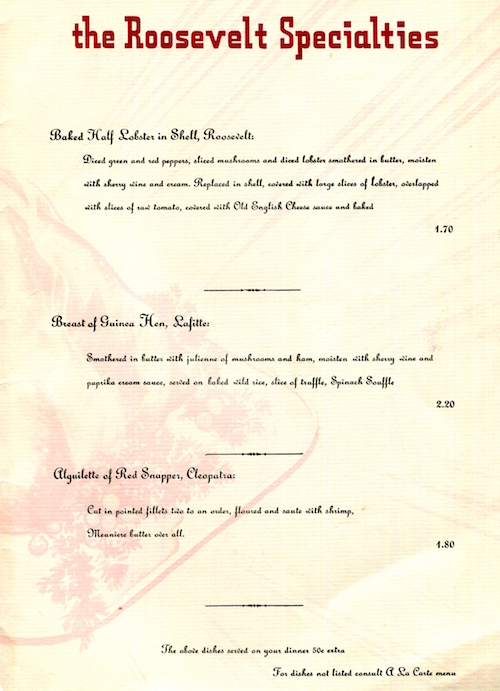 the Roosevelt Specialties
Baked Half Lobster in Shell, Roosevelt:
Diced green and red peppers, sliced mushrooms and diced lobster smothered in butter, moisten
with sherry wine and cream. Replaced in shell, covered with large slices of lobster, overlapped
with slices of raw tomato, covered with Old English Cheese sauce and baked
1.70
Breast of Guinea Hen, Lafitte:
Smothered in butter with julienne of mushrooms and ham, moisten with sherry wine and
paprika cream sauce, served on baked wild rice, slice of truffle, Spinach Souffle
2.20
Alguilette of Red Snapper, Cleopatra:
Cut in pointed fillets two to an order, floured and saute with shrimp,
Meuniere butter over all.
1.80
The above dishes served on your dinner 50c extra
For dishes not listed consult A La Carte menu